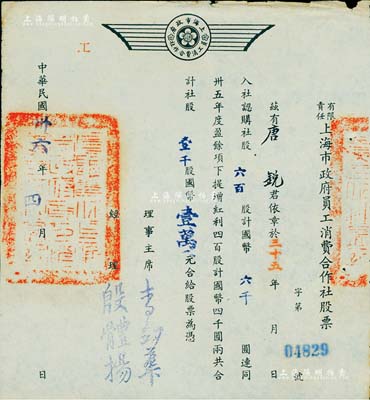 上海市政府
員工消費合作社
有限責任上海市政府員工消費合作社股票
字第04829號
茲有唐銳君依章於三十五年 月 日
入社認購社股六百股計國幣六千圓連同
卅五年度盈餘項下提增紅利四百股計國幣四千圓兩共合
計社股壹千股國幣壹萬元合給股票為憑
理事主席
經理 殷體揚
中華民國卅六年四月 日
工